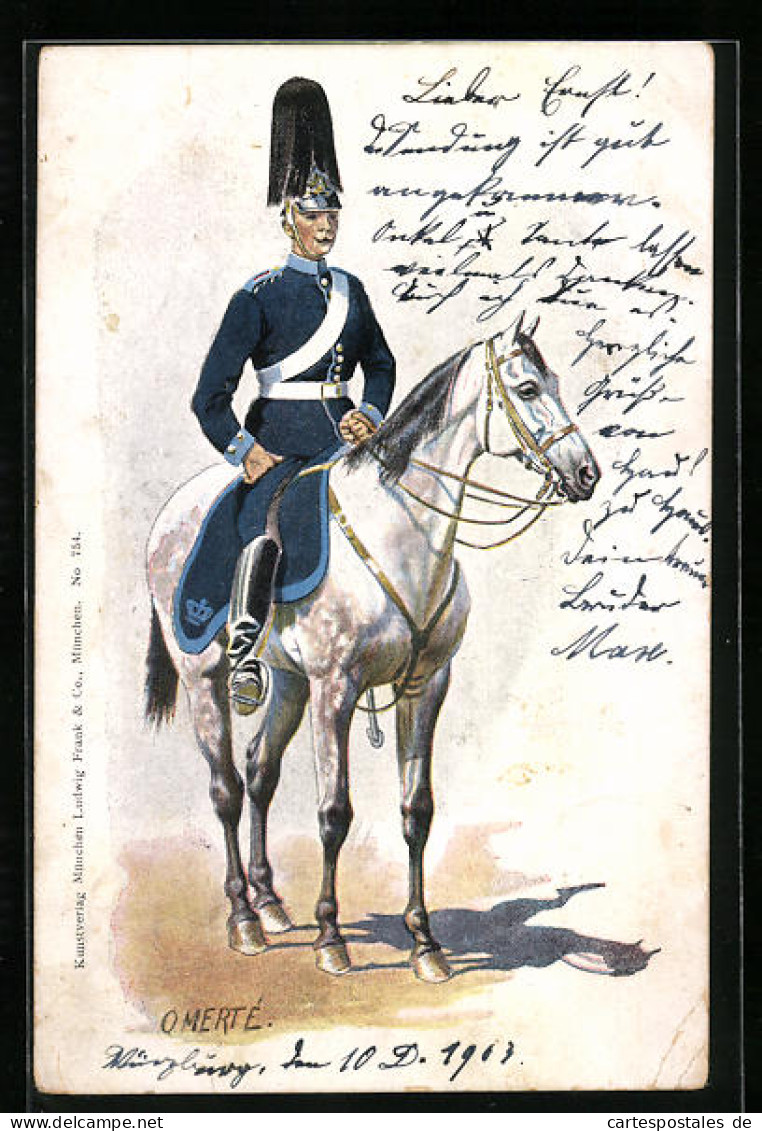 Lieber Ernst!
Sendung ist gut
angekommen.
Onkel u. Tante lassen
vielmals danken.
herzliche
Grüße
von
Haus
zu Haus.
Dein treuer
Bruder
Max.
Kunstverlag München Ludwig Frank & Co., München. No 754.
O MERTÉ.
Würzburg, den 10 D. 1903.
cartespostales de